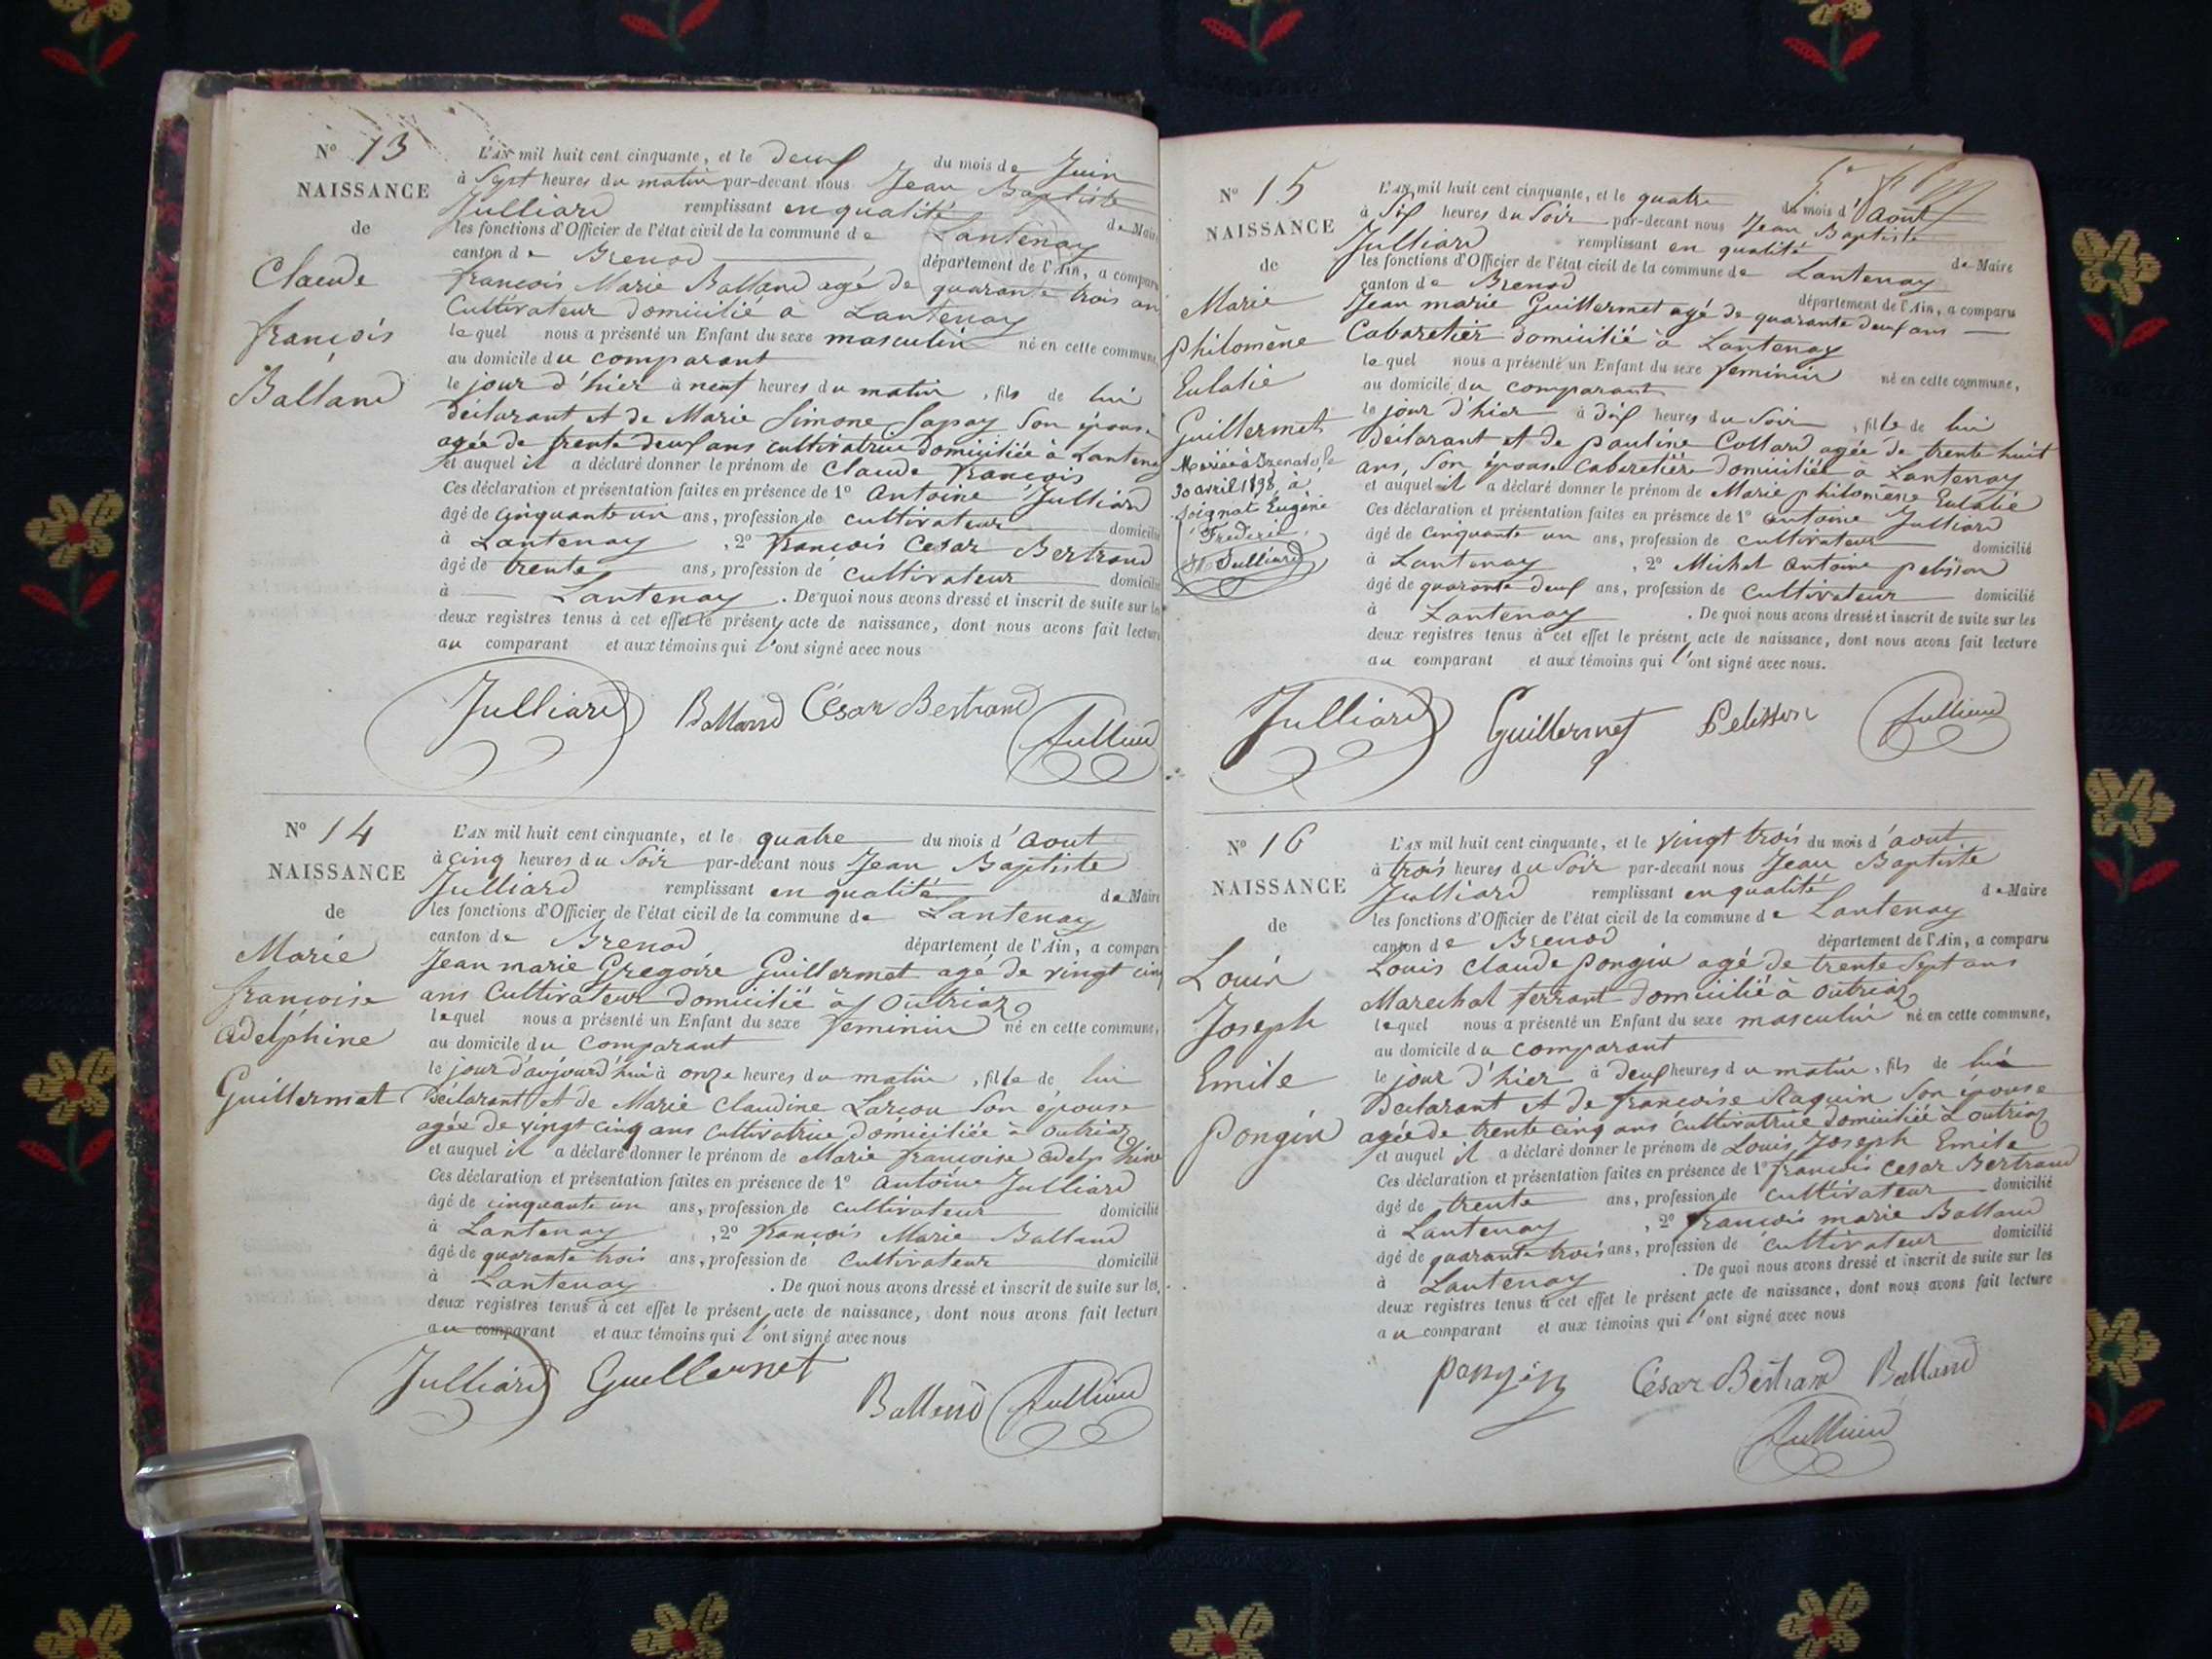 Nº 13
NAISSANCE
de
Claude
françois
Balland
L'AN mil huit cent cinquante, et le deux du mois de Juin
à Sept heures du matin par-devant nous Jean Baptiste
Julliard remplissant en qualité de Maire
les fonctions d'Officier de l'état civil de la commune de Lantenay
canton de Brenod département de l'Ain, a comparu
françois Marie Balland agé de quarante trois an
Cultivateur domicilié à Lantenay
lequel nous a présenté un Enfant du sexe masculin né en cette commune,
au domicile du comparant
le jour d'hier à neuf heures du matin, fils de lui
déclarant et de Marie Simone Sapay Son épouse
agée de trente deux ans cultivatrice domiciliée à Lantenay
et auquel il a déclaré donner le prénom de Claude françois
Ces déclaration et présentation faites en présence de 1º Antoine Julliard
âgé de cinquante un ans, profession de cultivateur domicilié
à Lantenay, 2º françois Cesar Bertrand
âgé de trente ans, profession de cultivateur domicilié
à Lantenay. De quoi nous avons dressé et inscrit de suite sur les
deux registres tenus à cet effet le présent acte de naissance, dont nous avons fait lecture
au comparant et aux témoins qui l'ont signé avec nous
Julliard Balland César Bertrand Julliard
Nº 14
NAISSANCE
de
Marie
françoise
adelphine
Guillermet
L'AN mil huit cent cinquante, et le quatre du mois d'aout
à cinq heures du Soir par-devant nous Jean Baptiste
Julliard remplissant en qualité de Maire
les fonctions d'Officier de l'état civil de la commune de Lantenay
canton de Brenod département de l'Ain, a comparu
Jean marie Gregoire Guillermet agé de vingt cinq
ans Cultivateur domicilié à outriaz
lequel nous a présenté un Enfant du sexe feminin né en cette commune,
au domicile du comparant
le jour d'aujourd'hui à onze heures du matin, fille de lui
Déclarant et de Marie Claudine Larcon Son épouse
agée de vingt cinq ans cultivatrice domiciliée à outriaz
et auquel il a déclaré donner le prénom de Marie françoise adelphine
Ces déclaration et présentation faites en présence de 1º Antoine Julliard
âgé de cinquante un ans, profession de cultivateur domicilié
à Lantenay, 2º françois Marie Balland
âgé de quarante trois ans, profession de cultivateur domicilié
à Lantenay. De quoi nous avons dressé et inscrit de suite sur les
deux registres tenus à cet effet le présent acte de naissance, dont nous avons fait lecture
au comparant et aux témoins qui l'ont signé avec nous
Julliard Guillermet Balland Julliard
Nº 15
NAISSANCE
de
Marie
philomène
Eulalie
Guillermet
Mariée à le
30 avril 1898, à
Soignat Eugène
Frédéric
Julliard
L'AN mil huit cent cinquante, et le quatre du mois d'Aout
à Six heures du Soir par-devant nous Jean Baptiste
Julliard remplissant en qualité de Maire
les fonctions d'Officier de l'état civil de la commune de Lantenay
canton de Brenod département de l'Ain, a comparu
Jean marie Guillermet agé de quarante deux ans
Cabaretier domicilié à Lantenay
lequel nous a présenté un Enfant du sexe feminin né en cette commune,
au domicile du comparant
le jour d'hier à dix heures du Soir, fille de lui
déclarant et de pauline Collard agée de trente huit
ans, Son épouse Cabaretière domiciliée à Lantenay
et auquel il a déclaré donner le prénom de Marie philomène Eulalie
Ces déclaration et présentation faites en présence de 1º antoine Julliard
âgé de cinquante un ans, profession de cultivateur domicilié
à Lantenay, 2º Michel Antoine pelisson
âgé de quarante deux ans, profession de cultivateur domicilié
à Lantenay. De quoi nous avons dressé et inscrit de suite sur les
deux registres tenus à cet effet le présent acte de naissance, dont nous avons fait lecture
au comparant et aux témoins qui l'ont signé avec nous.
Julliard Guillermet Pelisson Julliard
Nº 16
NAISSANCE
de
Louis
Joseph
Emile
Pongin
L'AN mil huit cent cinquante, et le vingt trois du mois d'aout
à trois heures du Soir par-devant nous Jean Baptiste
Julliard remplissant en qualité de Maire
les fonctions d'Officier de l'état civil de la commune de Lantenay
canton de Brenod département de l'Ain, a comparu
Louis Claude pongin agé de trente Sept ans
Marechal ferrant domicilié à outriaz
lequel nous a présenté un Enfant du sexe masculin né en cette commune,
au domicile du comparant
le jour d'hier à deux heures du matin, fils de lui
Déclarant et de françoise Raquin Son épouse
agée de trente cinq ans cultivatrice domiciliée à outriaz
et auquel il a déclaré donner le prénom de Louis Joseph Emile
Ces déclaration et présentation faites en présence de 1º françois Cesar Bertrand
âgé de trente ans, profession de cultivateur domicilié
à Lantenay, 2º françois marie Balland
âgé de quarante trois ans, profession de cultivateur domicilié
à Lantenay. De quoi nous avons dressé et inscrit de suite sur les
deux registres tenus à cet effet le présent acte de naissance, dont nous avons fait lecture
au comparant et aux témoins qui l'ont signé avec nous
pongin César Bertrand Balland
Julliard